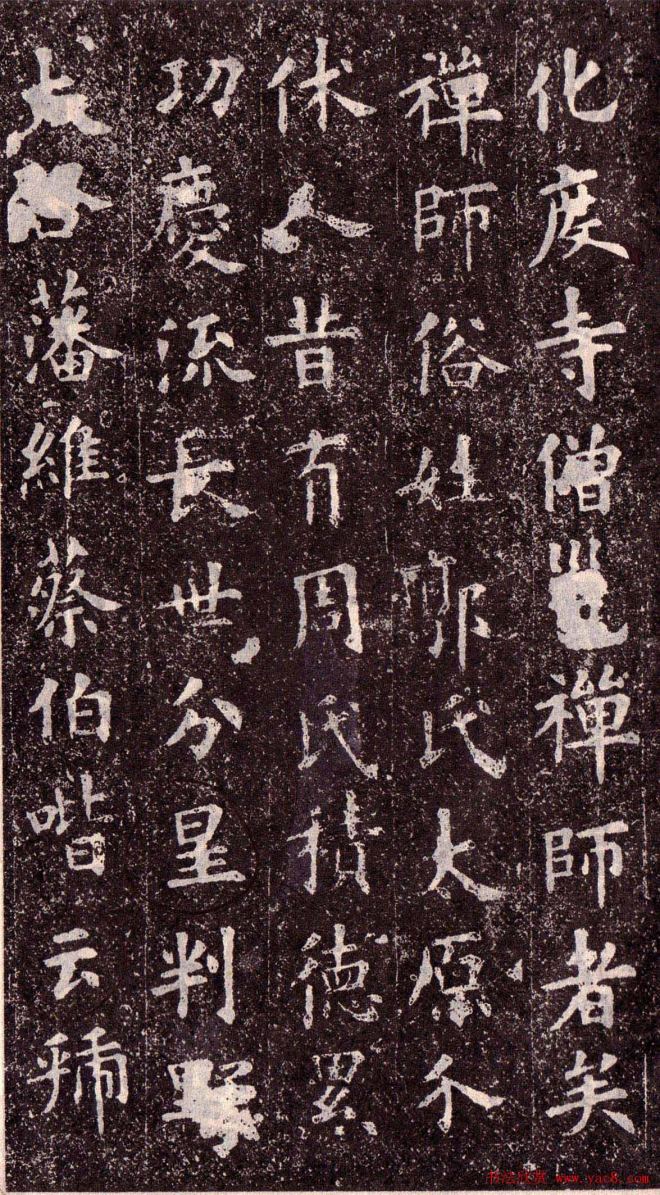 化度寺僧邕禪師者矣
禪師俗姓郭氏太原介
休人昔有周氏積德累
功慶流長世分星判野
藩維蔡伯喈云虢
书法欣赏 www.yac8.com